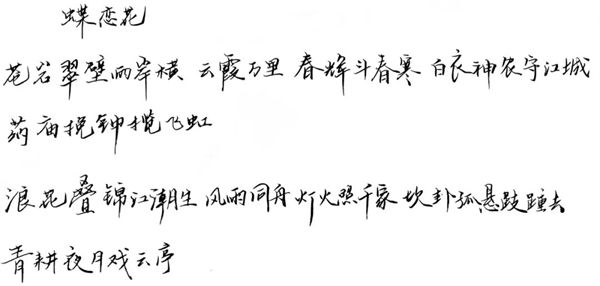 蝶恋花
苍岩翠壁两岸横 云霞万里 春烽斗春寒 白衣神农守江城
药庙挽钟揽飞虹
浪花叠锦江潮生 风雨同舟 灯火照千家 坎卦孤悬踱踵去
青耕夜月戏云亭